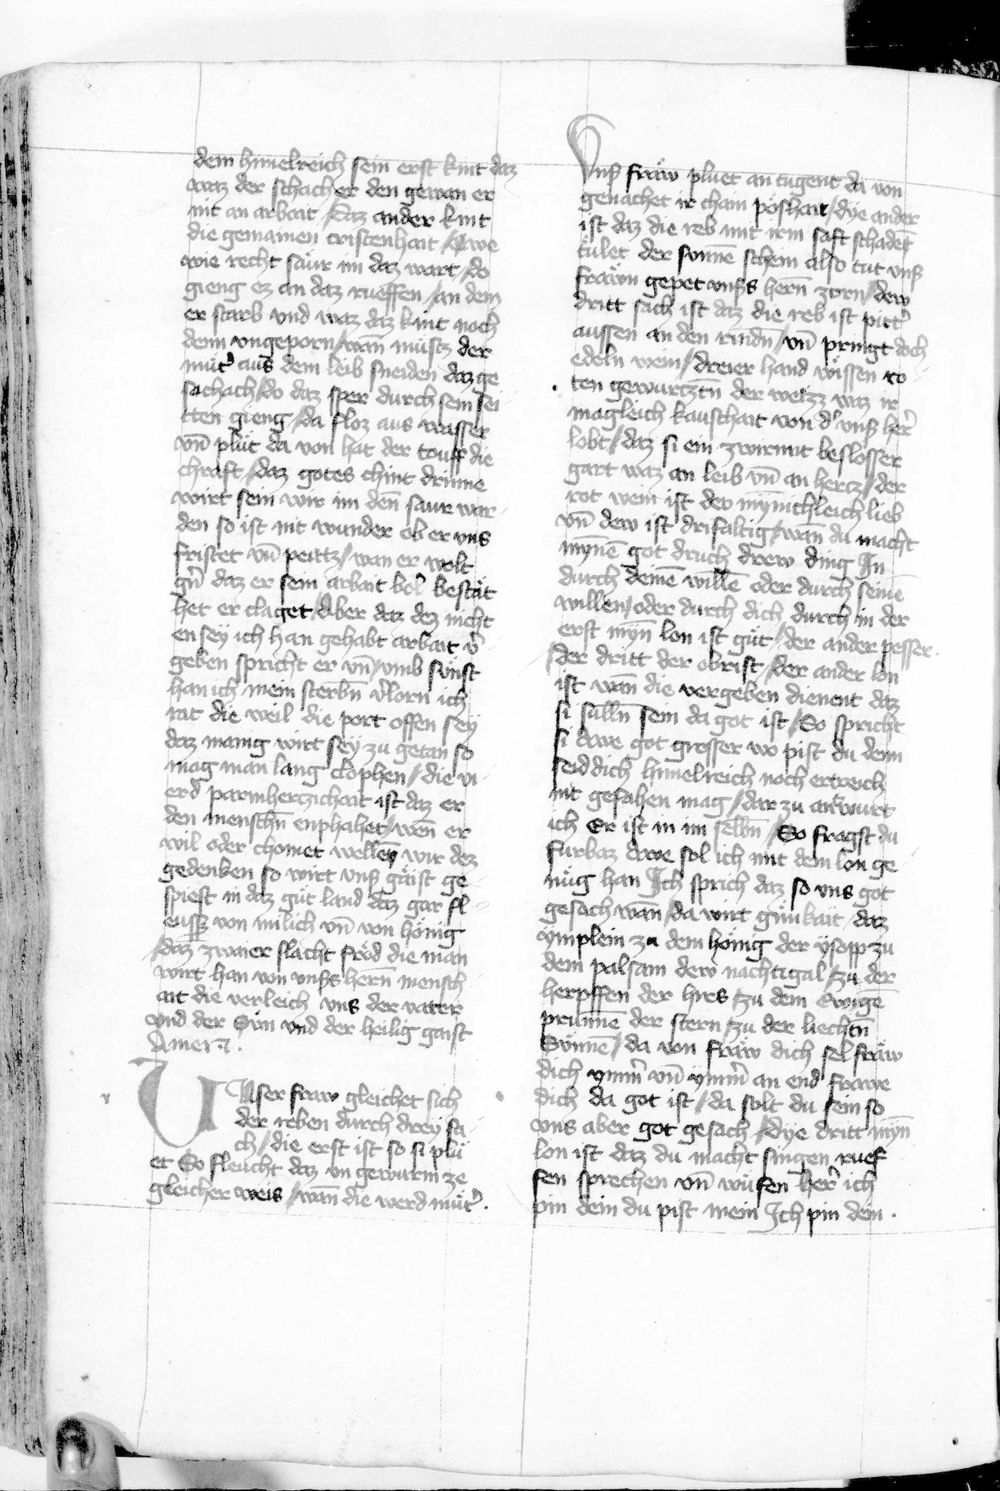 dem himelreich sein erst kint daz
waz der schacher den gewan er
nit an arbait / daz ander kint
die gemainen cristenhait / Awe
wie recht saur im daz wart / do
gieng ez an daz rueffen / an dem
er starb vnd waz daz kint noch
denn vngeporn / wan müstz der
müt̓ aus dem leib sneiden daz ge
schach / do daz sper durch sein sei
tten gieng / da floz aus wasser
vn̄ plüt da von hat der touff die
chraft / daz gotes chint drinne
wirt sein wir im den̄ saur wor
den so ist nit wunder ob er vns
fristet vn̄ peittz / wan er wolt
gn̄ daz er sein arbait bol̓ bestät
het er claget / Aber daz dez nicht
en sey ich han gehabt arbait v̓
geben spricht er vn̄ / vmb sünst
han ich mein sterbn̄ v̓lorn ich
rat die weil die port offen sey
daz manig wirt sey zu getan so
mag man lang clophen / die vi
erd̓ parmherczichait ist daz er
den menschn̄ enphahet / wen̄ er
wil oder chomet wellen wir dez
gedenken so wirt vnß gaist ge
speist in daz güt land daz gar fl
eusset von milich vn̄ von hönig
/ daz zwaier slacht fröd die man
wirt han von vnßs hern̄ mensch
ait die verleich vns der vater
vnd der Sün vnd der heilig gaist
Amen.
VNser fraw gleichet sich
der reben durch drey sa
ch / die erst ist so si plü
et So fleucht daz vn gewurm ze
gleicher weis / wan̄ die werd müt̓.
Vnß fräw pluet an tugent da von
genachet ir chain poshait / dye ander
ist daz die reb mit irm saft schaden̄
tulet der sunnē schein also tut vnß
fräwn gepet vnßs hern̄ zorn / dew
dritt sach ist daz die reb ist pitt̓
aussen an den rindn̄ / vn̄ pringt doch
edeln wein / dreier hand wissen ro
ten gewurtztn̄ der weizz waz ir
magleich kauschait von d̓ vnß her̓
lobt / daz si ein zwirnnt beslosser
gart waz an leib vn̄ an hercz / der
rot wein ist dev mynnichleich lieb
vn̄ dew ist drifaltig / wan̄ du macht
mynnē got druch drew ding In
durch deinē willē oder durch seinē
willen / oder durch dich durch in der
erst mynn lon ist güt / der ander pesser.
/ der dritt der obrist / der ander lon
ist wan̄ die vergeben dienent daz
si sulln̄ sein da got ist / So spricht
si dowe got grosser wo pist du denn
seid dich himelreich noch ertreich
nit gefahen mag / dar zu antwurt
ich Er ist in im selbn̄ / So fragst du
furbaz dowe sol ich mit dem lon ge
nüg han Ich sprich daz so vns got
gesach wan̄ / da wirt günikait / daz
ymplein zu dem hönig der ysopp zu
dem palsam dew nachtigal / zu der
herpffen der hirs / zu dem Ewigē
prunnē der stern / zu der liechtn̄
Sünnē / da von fräw dich sel fräw
dich ymm̓ vn̄ ymm̓ an end frawe
dich da got ist / da solt du sein so
vns aber got gesach / dye dritt mynn
lon ist daz du macht singen ruef
fen sprechen vn̄ wüfen her̓ ich
pin dein du pist mein Ich pin dein.